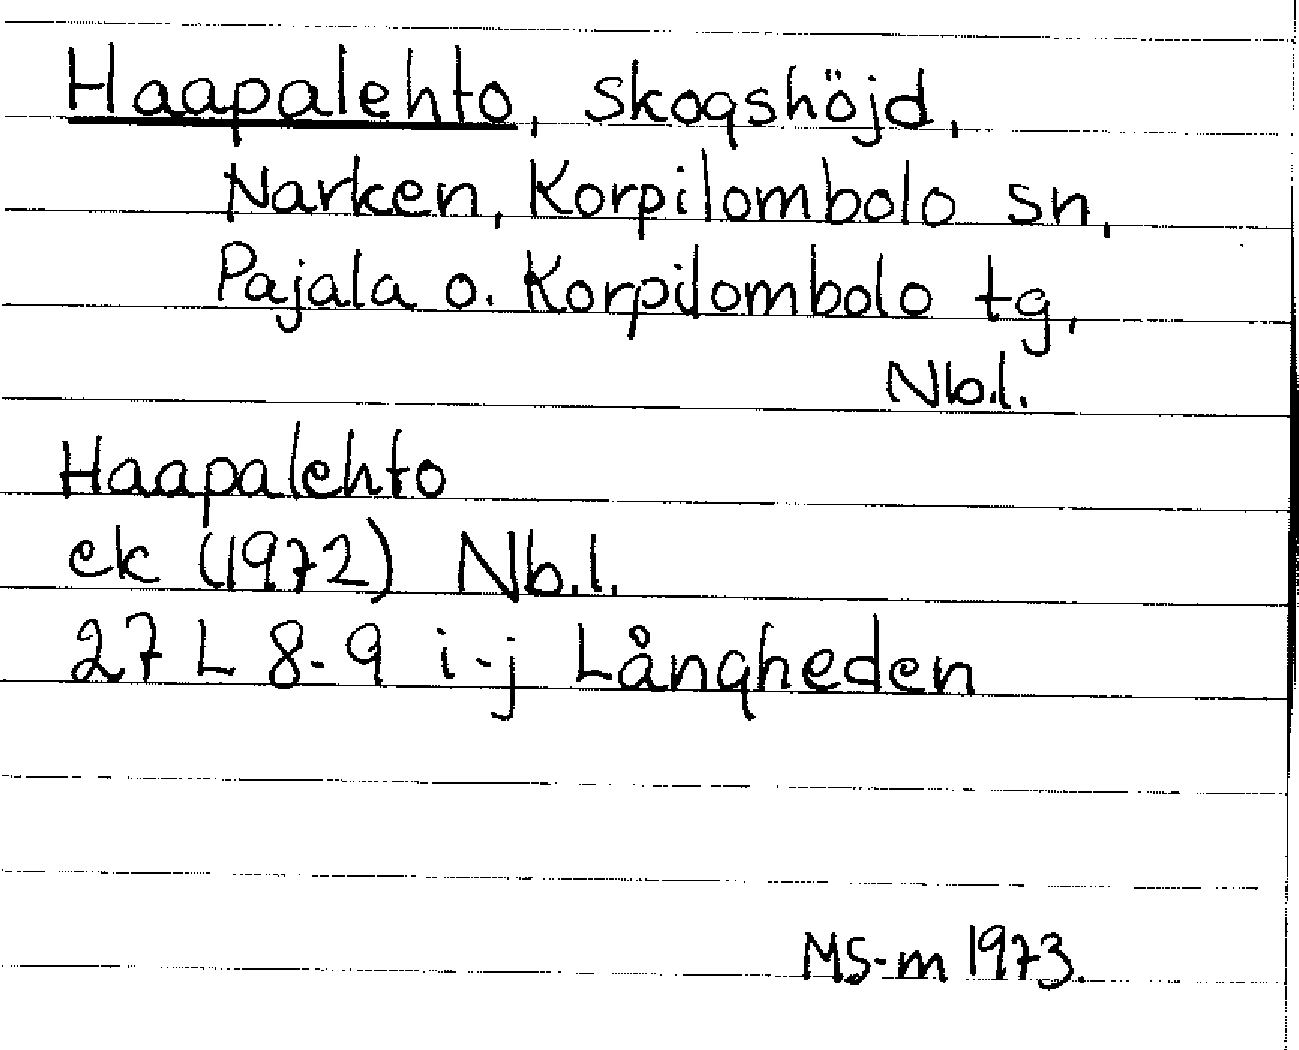 Haapalehto, skogshöjd,
Narken, Korpilombolo sn,
Pajala o. Korpilombolo tg,
Nb.l.
Haapalehto
ek (1972) Nb.l.
27 L 8-9 i-j Långheden
MS-m 1973.